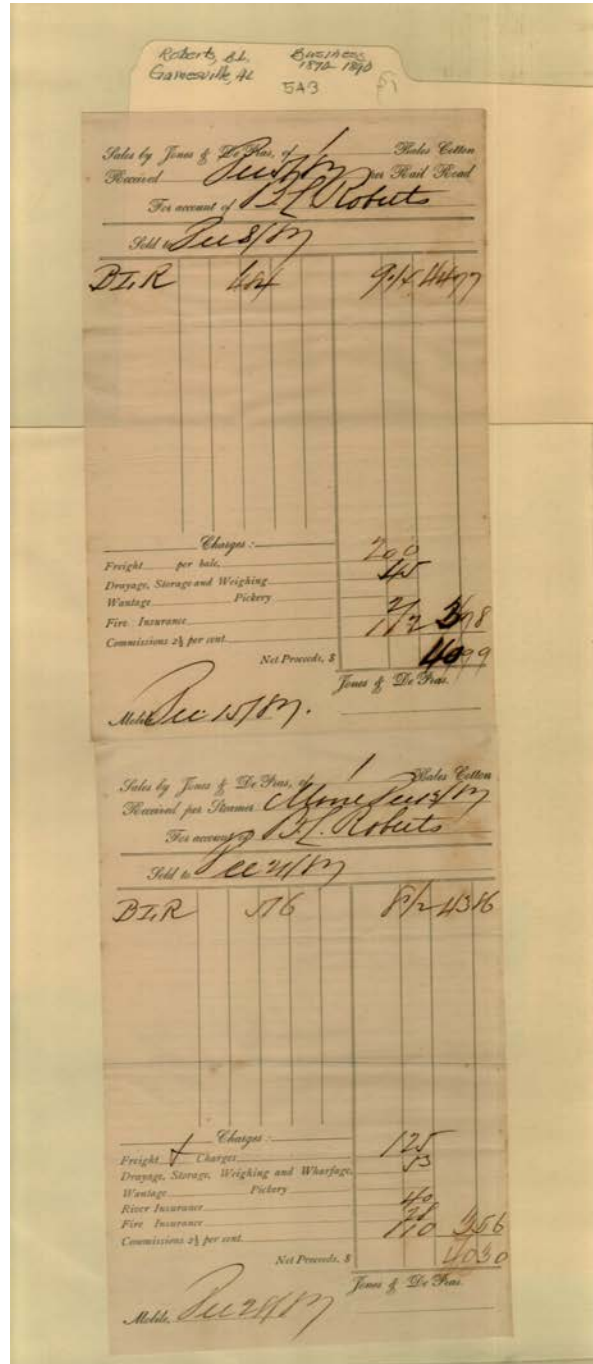 Roberts, B.L. Business
Gainesville, AL 1870-1890
5A3
Sales by Jones & De Fras, of 1 Bales Cotton
Received Dec 7/87 per Rail Road
For account of B.L. Roberts
Sold to Dec 8/87
BLR 484 9 1/4 44 77
Charges:
Freight per bale, 2 00
Drayage, Storage and Weighing 45
Wantage Pickery
Fire Insurance 21
Commissions 2½ per cent 1 12 3 78
Net Proceeds, $ 40 99
Jones & De Fras.
Mobile, Dec 15/87.
Sales by Jones & De Fras, of 1 Bales Cotton
Received per Steamer
For account of B.L. Roberts
Sold to Dec 21/87
BLR 516 8 1/2 43 86
Charges:
Freight & Charges 1 25
Drayage, Storage, Weighing and Wharfage, 53
Wantage Pickery
River Insurance 40
Fire Insurance 28
Commissions 2½ per cent 1 10 3 56
Net Proceeds, $ 40 30
Jones & De Fras.
Mobile, Dec 28/87